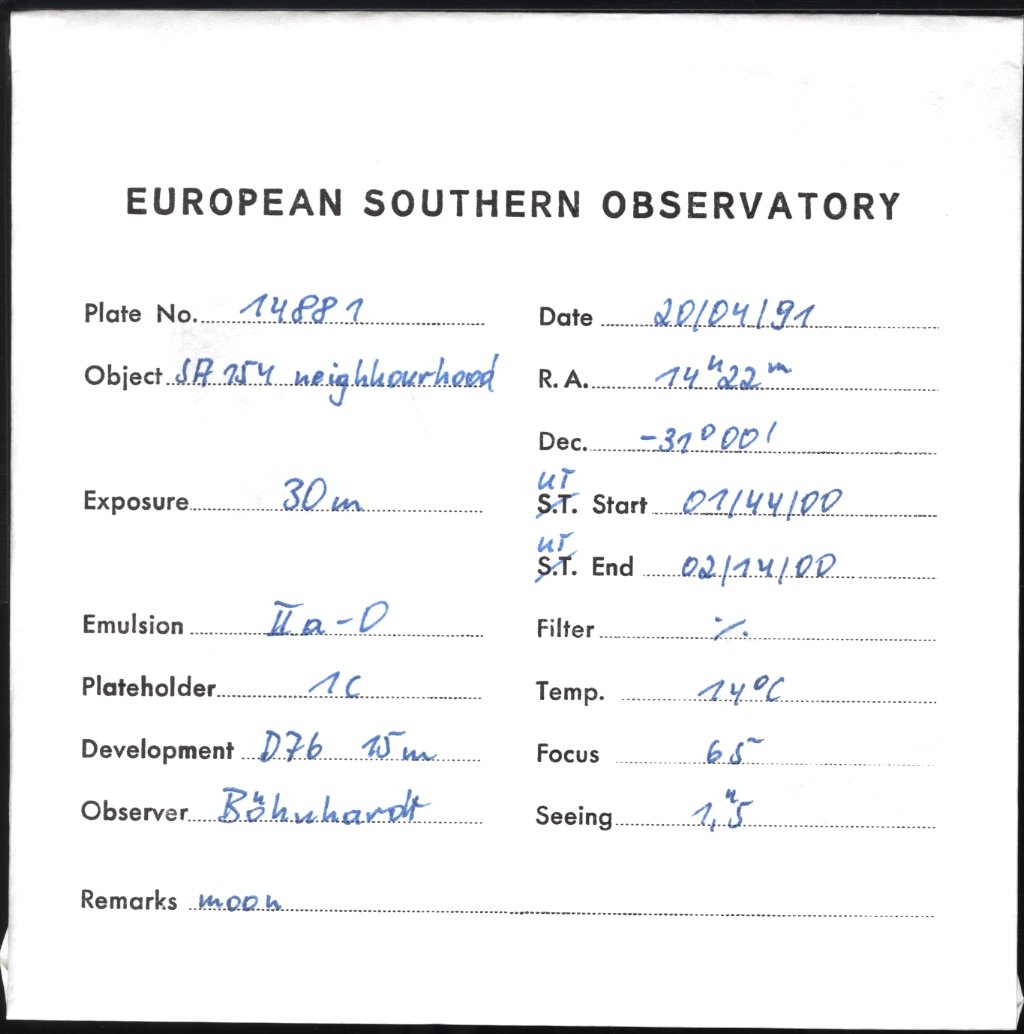 EUROPEAN SOUTHERN OBSERVATORY
Plate No. 14881 Date 20/04/91
Object SA 154 neighbourhood R.A. 14h22m
Dec. -31°00'
UT
Exposure 30m S.T. Start 01/44/00
UT
S.T. End 02/14/00
Emulsion IIa-O Filter ./.
Plateholder 1C Temp. 14°C
Development D76 15m Focus 65
Observer Böhnhardt Seeing 1,"5
Remarks moon